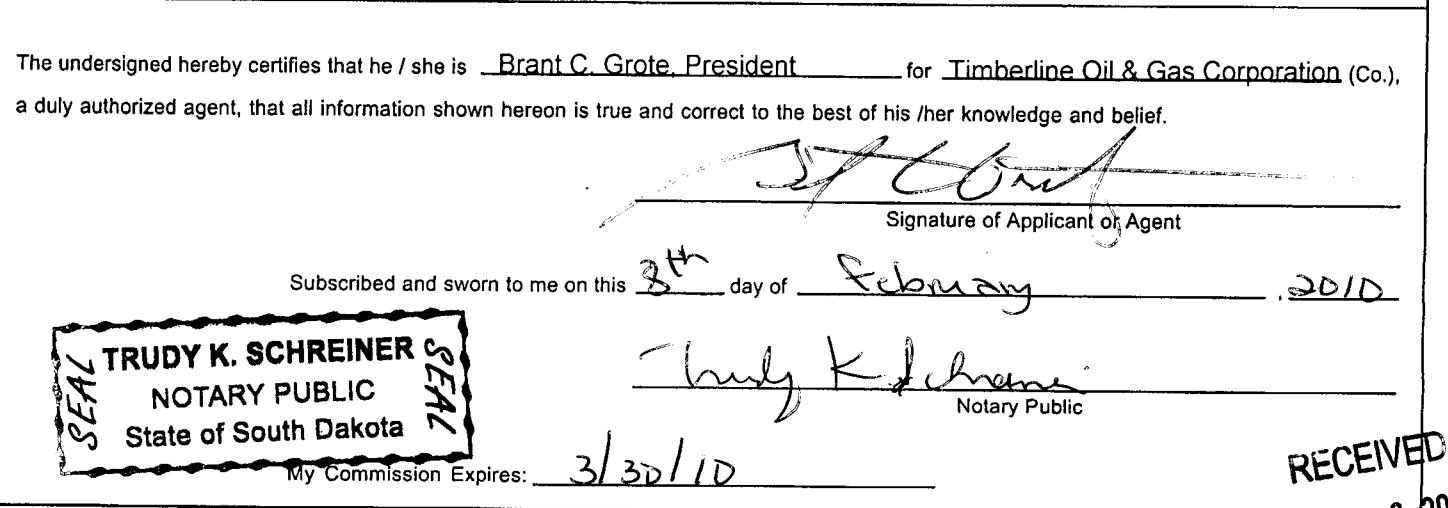 The undersigned hereby certifies that he / she is Brant C. Grote, President for Timberline Oil & Gas Corporation (Co.),
a duly authorized agent, that all information shown hereon is true and correct to the best of his /her knowledge and belief.
Signature of Applicant or Agent
Subscribed and sworn to me on this 8th day of February, 2010
SEAL TRUDY K. SCHREINER SEAL
NOTARY PUBLIC
State of South Dakota
Trudy K Schreiner
Notary Public
My Commission Expires: 3/30/10
RECEIVED